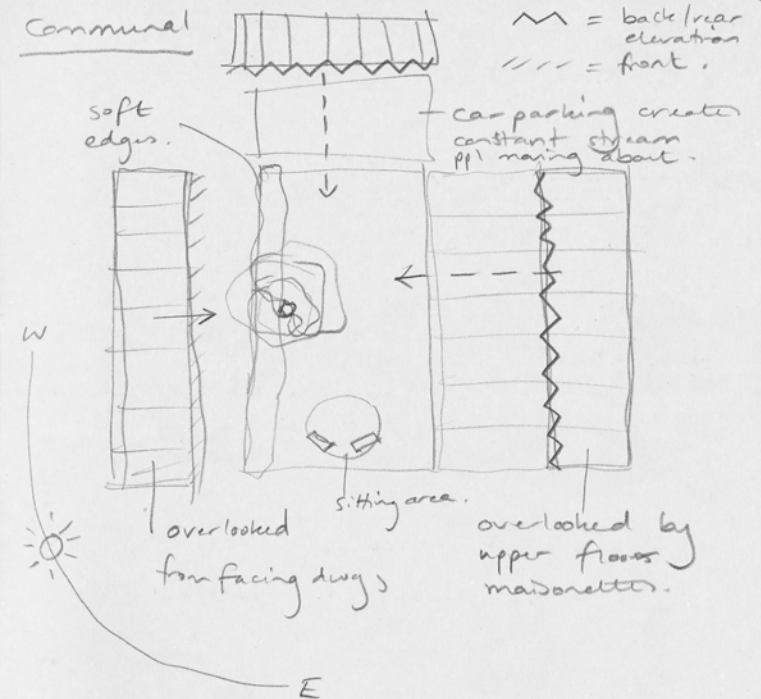 Communal
= back/rear
elevation
= front.
soft
edges.
car parking creates
constant stream
ppl moving about.
W
sitting area.
overlooked
from facing dwgs
overlooked by
upper floors
maisonettes.
E